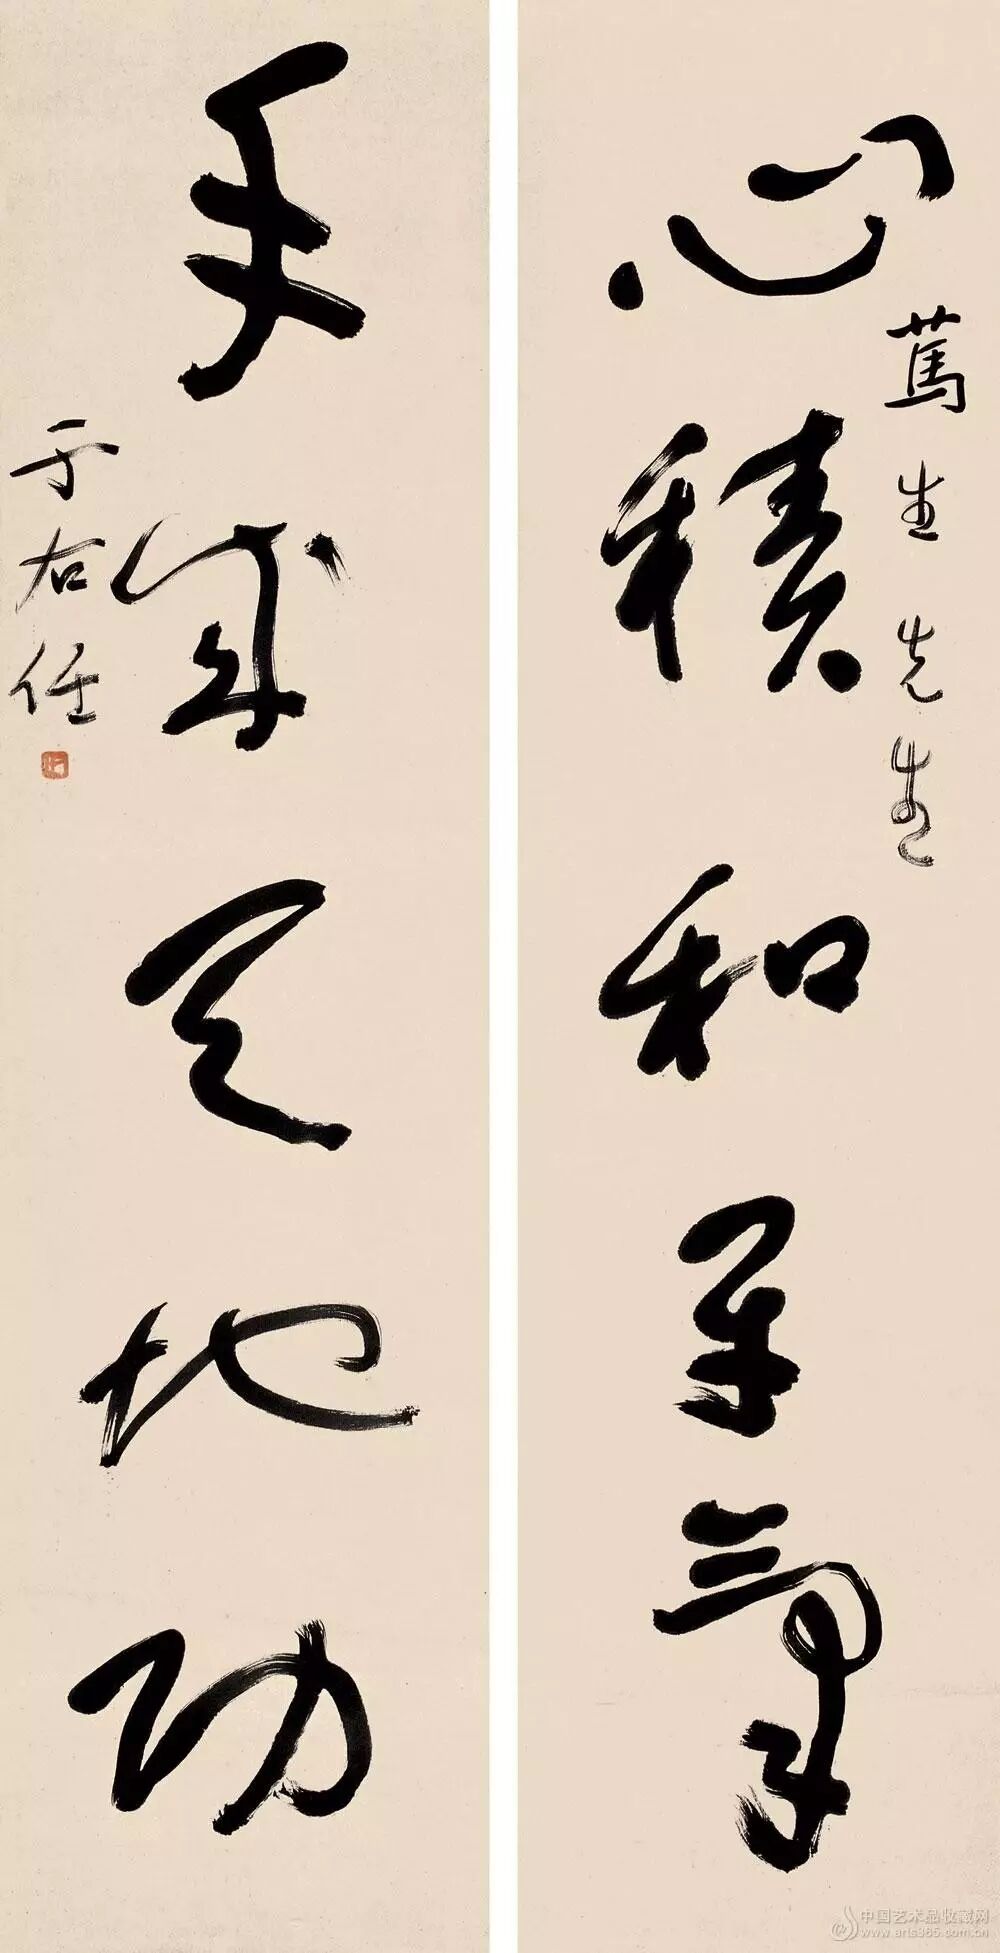 心積和平氣
篤生先生
手成天地功
于右任
中国艺术品收藏网
www.arts365.com.cn